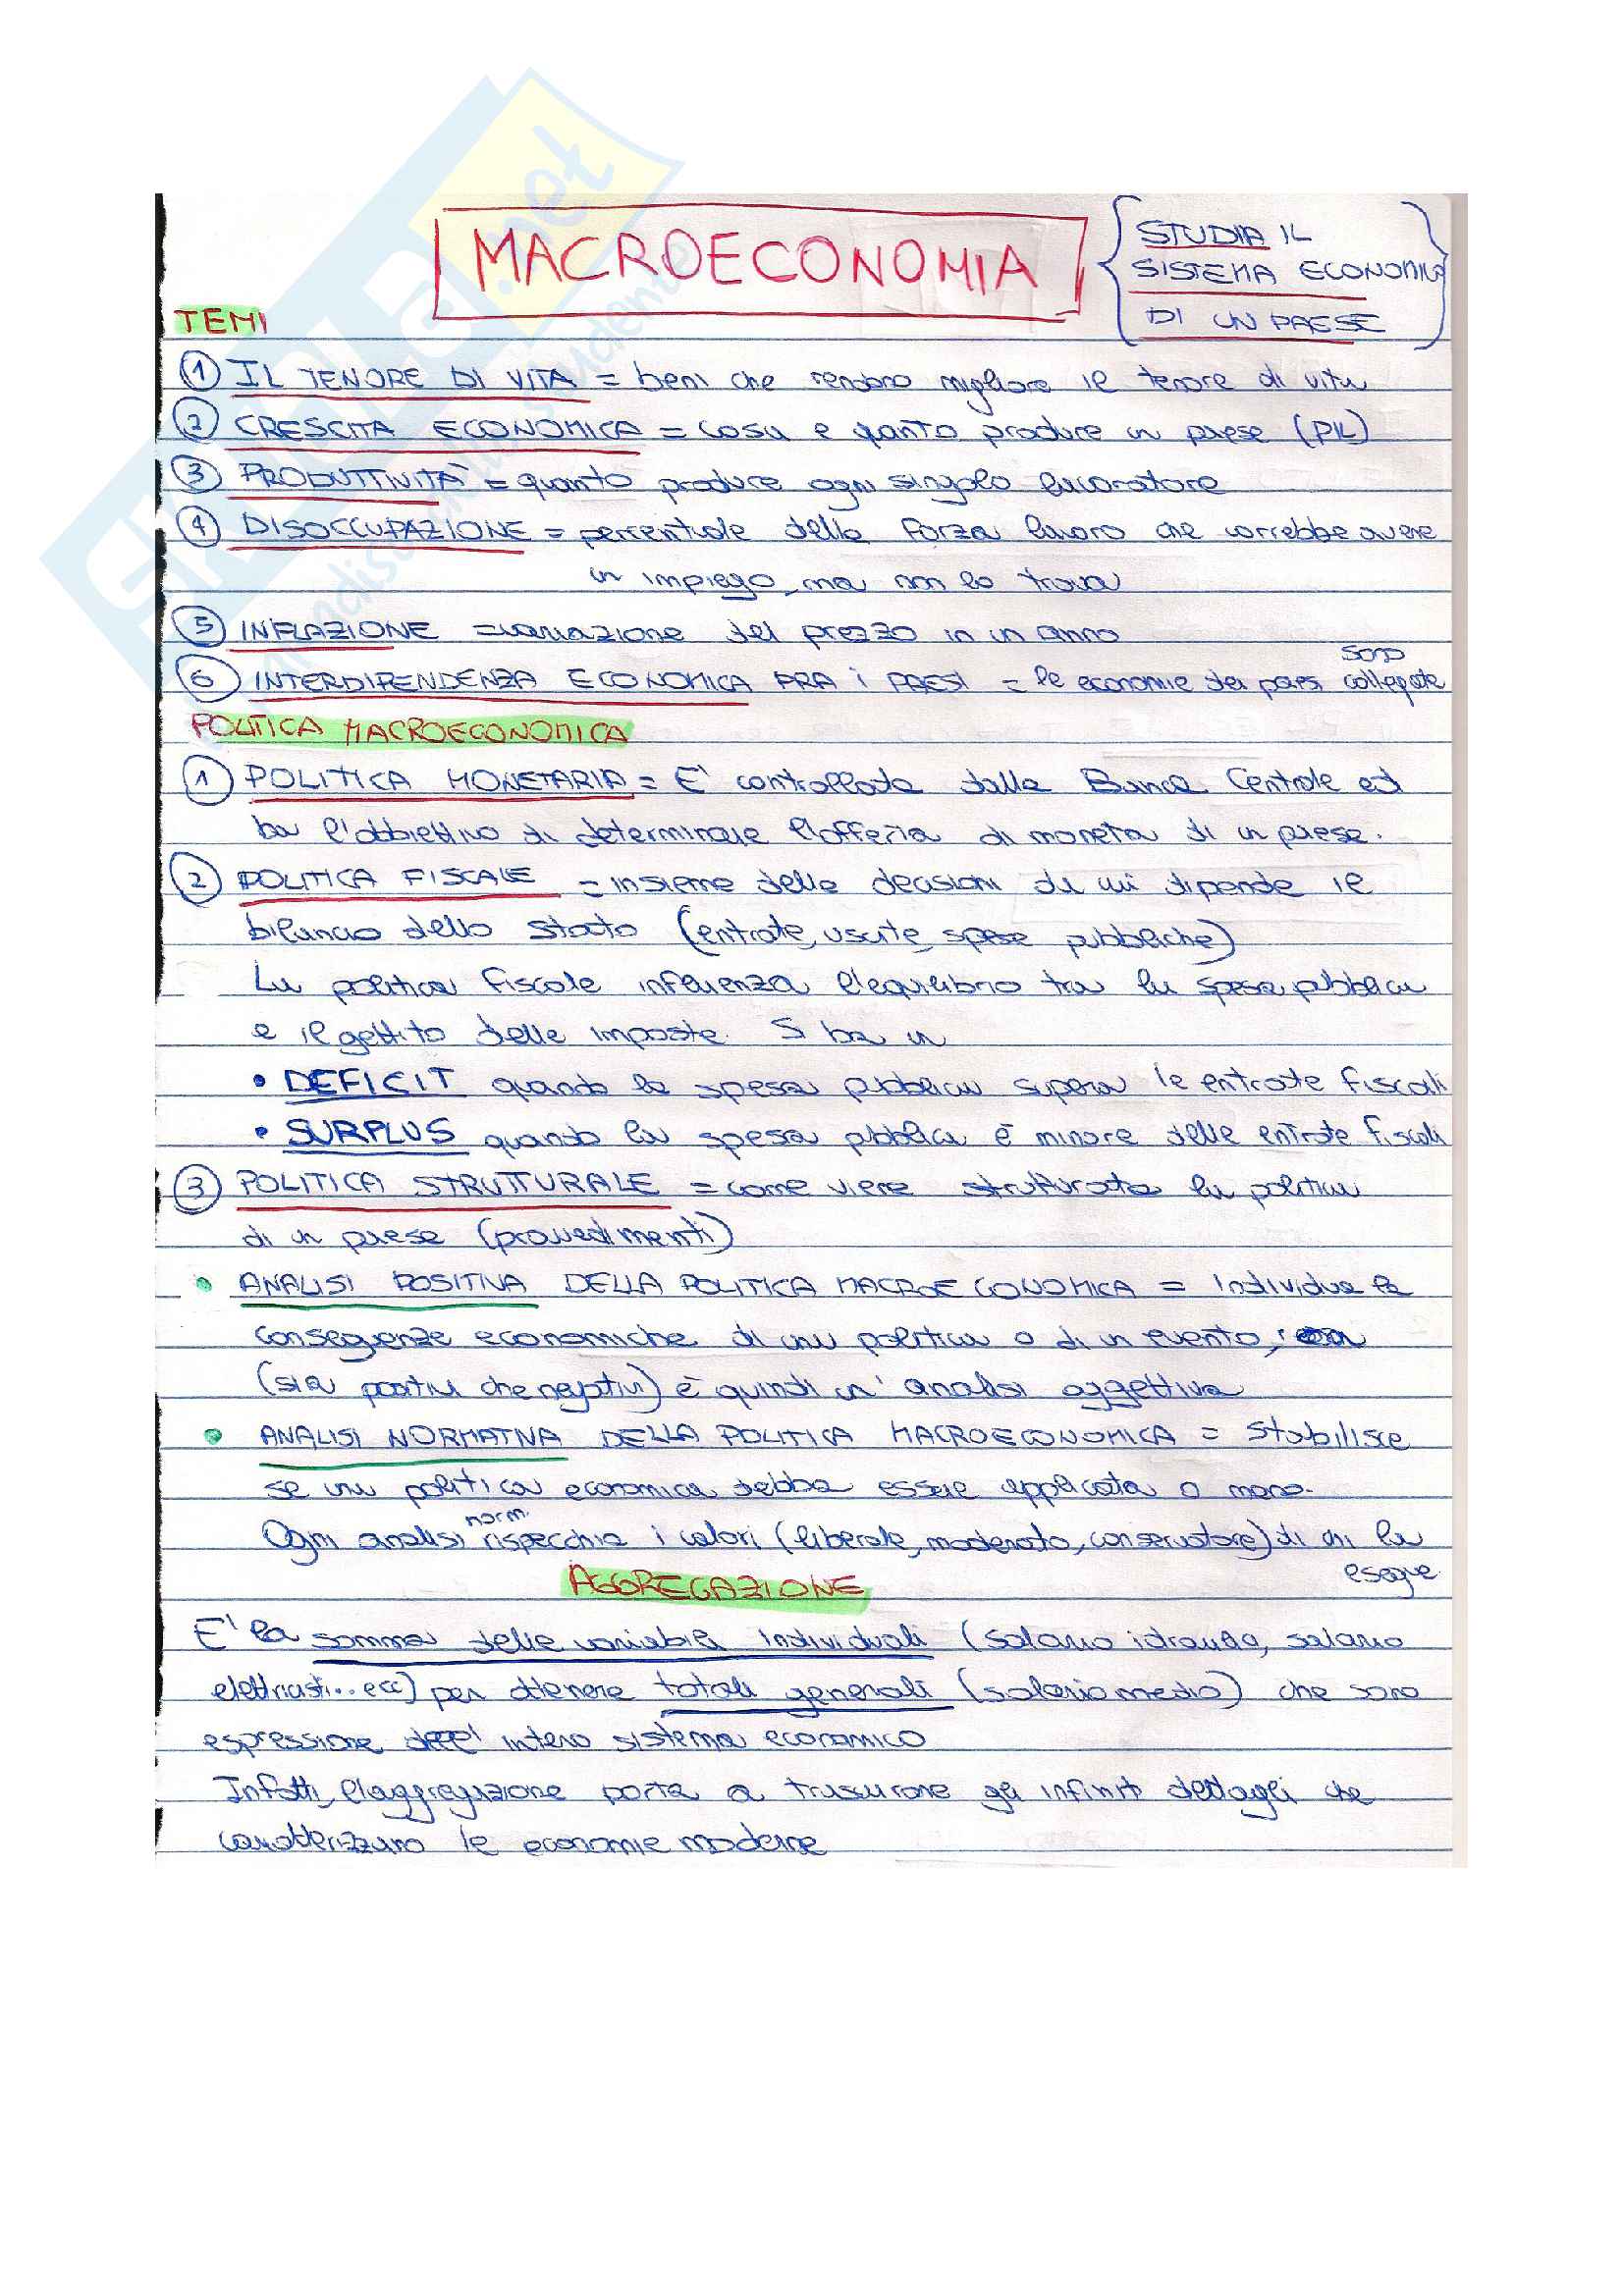 MACROECONOMIA
STUDIA IL
SISTEMA ECONOMICO
DI UN PAESE
TEMI
1 IL TENORE DI VITA = beni che rendono migliore il tenore di vita
2 CRESCITA ECONOMICA = cosa e quanto produce un paese (PIL)
3 PRODUTTIVITÀ = quanto produce ogni singolo lavoratore
4 DISOCCUPAZIONE = percentuale della forza lavoro che vorrebbe avere
un impiego, ma non lo trova
5 INFLAZIONE = variazione del prezzo in un anno
6 INTERDIPENDENZA ECONOMICA FRA i PAESI = le economie dei paesi sono collegate
POLITICA MACROECONOMICA
1 POLITICA MONETARIA = E' controllata dalla Banca Centrale ed
ha l'obbiettivo di determinare l'offerta di moneta di un paese.
2 POLITICA FISCALE = insieme delle decisioni da cui dipende il
bilancio dello stato (entrate, uscite, spese pubbliche)
La politica fiscale influenza l'equilibrio tra la spesa pubblica
e il gettito delle imposte. Si ha un
• DEFICIT quando la spesa pubblica supera le entrate fiscali
• SURPLUS quando la spesa pubblica è minore delle entrate fiscali
3 POLITICA STRUTTURALE = come viene strutturata la politica
di un paese (provvedimenti)
• ANALISI POSITIVA DELLA POLITICA MACROECONOMICA = Individua le
conseguenze economiche di una politica o di un evento,
(sia positivi che negativi) è quindi un' analisi oggettiva
• ANALISI NORMATIVA DELLA POLITICA MACROECONOMICA = Stabilisce
se una politica economica debba essere applicata o meno.
Ogni analisi norm. rispecchia i valori (liberale, moderato, conservatore) di chi la
esegue
AGGREGAZIONE
E' la somma delle variabili individuali (salario idrauco, salario
elettricisti... ecc) per ottenere totali generali (salario medio) che sono
espressione dell' intero sistema economico
Infatti, l'aggregazione porta a trascurare gli infiniti dettagli che
caratterizzano le economie moderne